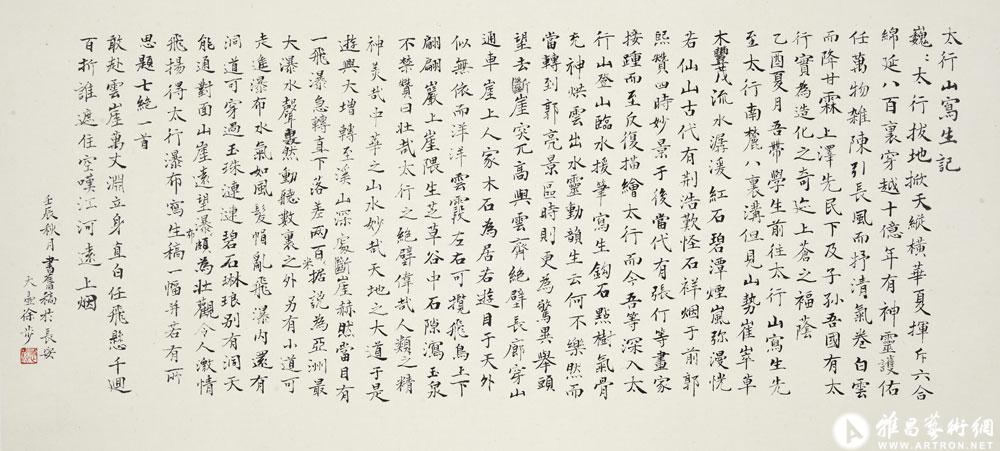 太行山寫生記
巍:太行拔地掀天縱橫華夏揮斥六合
綿延八百裏穿越十億年有神靈護佑
任萬物雜陳引長風而抒清氣卷白雲
而降甘霖上澤先民下及子孫吾國有太
行實為造化之奇迹上蒼之福蔭
乙酉夏月吾帶學生前往太行山寫生先
至太行南麓八裏溝但見山勢崔嵂草
木豐茂流水潺湲紅石碧潭煙嵐弥漫恍
若仙山古代有荆浩歎怪石祥烟于前郭
熙贊四時妙景于後當代有張仃等畫家
接踵而至反復描繪太行而今吾等深入太
行山登山臨水援筆寫生鈎石點樹氣骨
充神烘雲出水靈動韻生云何不樂然而
當轉到郭亮景區時則更為驚異舉頭
望去斷崖突兀高與雲齊絕壁長廊穿山
通車崖上人家木石為居右遊目于天外
似無依而洋洋雲霞左右可攬飛鳥上下
翩翩巖上崖隈生芝草谷中石隙瀉玉泉
不禁贊曰壯哉太行之絕壁偉哉人類之精
神美哉中華之山水妙哉天地之大道于是
遊興大增轉至溪山深處斷崖赫然當目有
一飛瀑急轉直下落差兩百米據說為亞洲最
大瀑水聲轟然動聽數裏之外另有小道可
走進瀑布水氣如風髮帽亂飛瀑内還有
洞道可穿過玉珠漣漣碧石琳琅别有洞天
能通對面山崖遠望瀑布頗為壯觀令人激情
飛揚得太行瀑布寫生稿一幅并若有所
思題七絕一首
敢赴雲崖萬丈淵立身直白任飛懸千迴
百折誰遮住空嘆江河遠上烟
壬辰秋月書舊稿於長安
大壺徐步
雅昌藝術網
WWW.ARTRON.NET